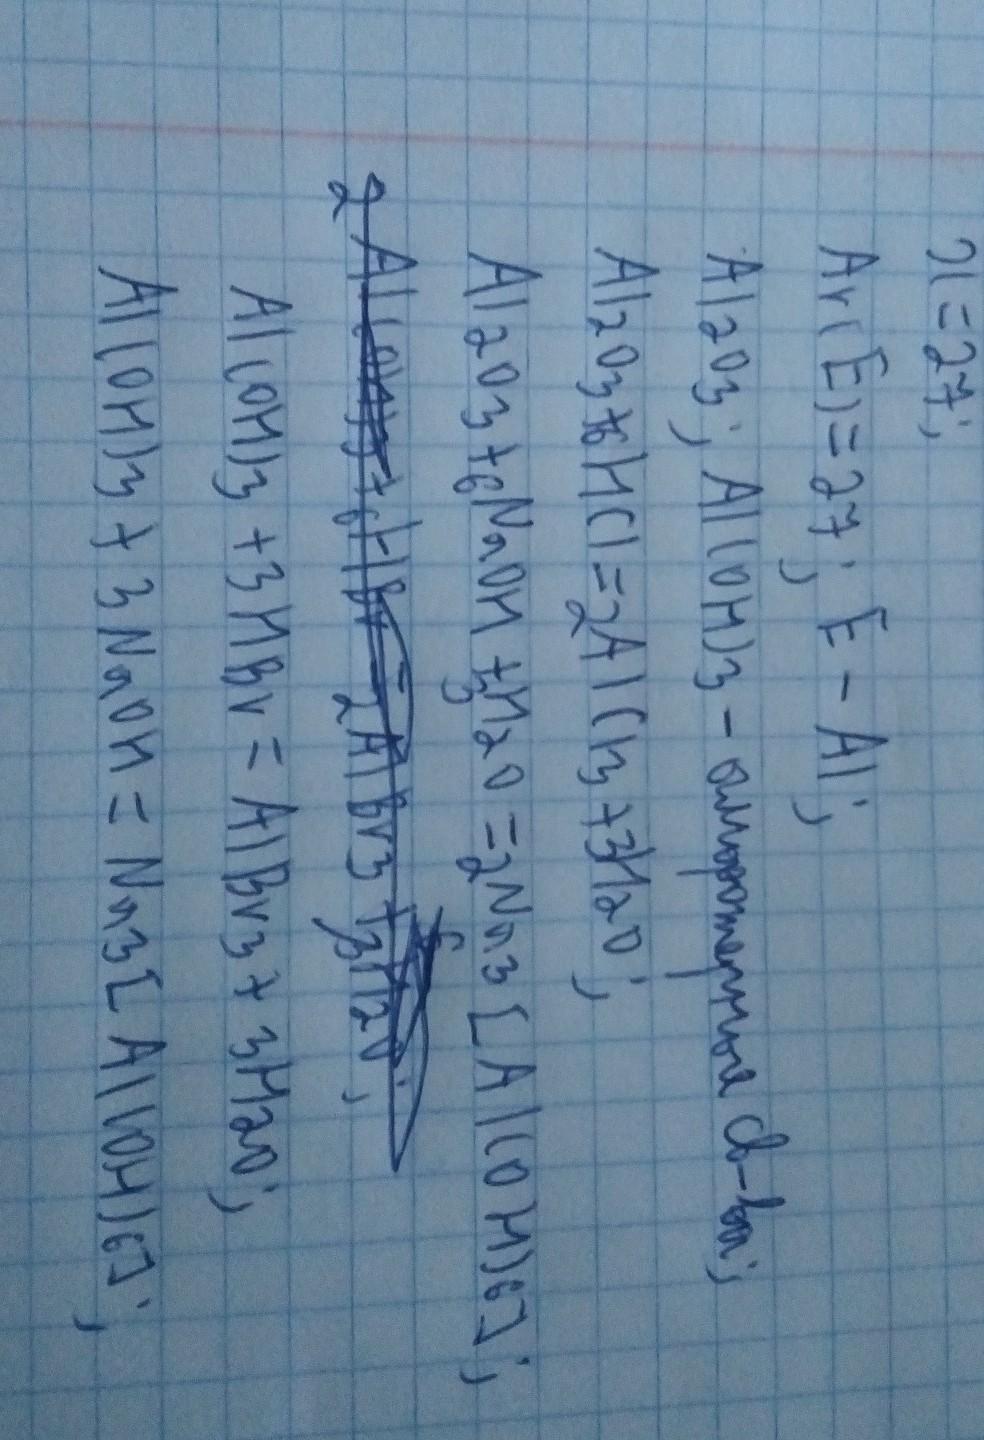 x=27;
Ar(E)=27; E - Al;
Al2O3; Al(OH)3 - амфотерные св-ва;
Al2O3+6HCl=2AlCl3+3H2O;
Al2O3+6NaOH+3H2O=2Na3[Al(OH)6];
2Al(OH)3+6HBr=2AlBr3+3H2O;
Al(OH)3+3HBr=AlBr3+3H2O;
Al(OH)3+3NaOH=Na3[Al(OH)6];